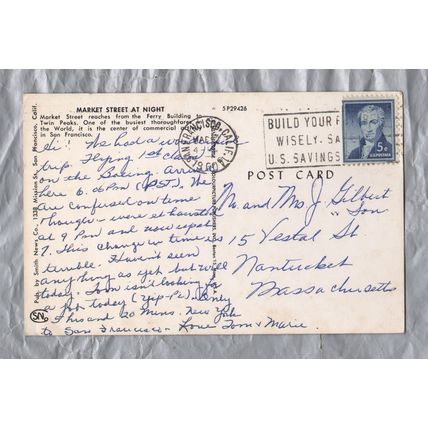 MARKET STREET AT NIGHT
Market Street reaches from the Ferry Building to
Twin Peaks. One of the busiest thoroughfares
the World, it is the center of commercial
in San Francisco.
5P29426
Pub. by Smith News Co., 1338 Mission St., San Francisco, Calif.
SN
SAN FRANCISCO, CALIF.
BUILD YOUR F
WISELY. SA
U.S. SAVINGS
5¢
POST CARD
Hi! We had a
trip. Flying 1st class
on the Boeing. Arrived
here 6.06 PM (PST). We
are confused on time
though - were exhausted
at 9 PM and now up at
7. This change in time is
terrible. Haven't seen
anything as yet but will
today. Tom isn't looking for
a job today (yip-pi). Only
5 hrs and 20 mins. New York
to San Francisco - Love Tom & Marie.
Mr and Mrs J. Gilbert
"Son
15 Vestal St
Nantucket
Massachusetts